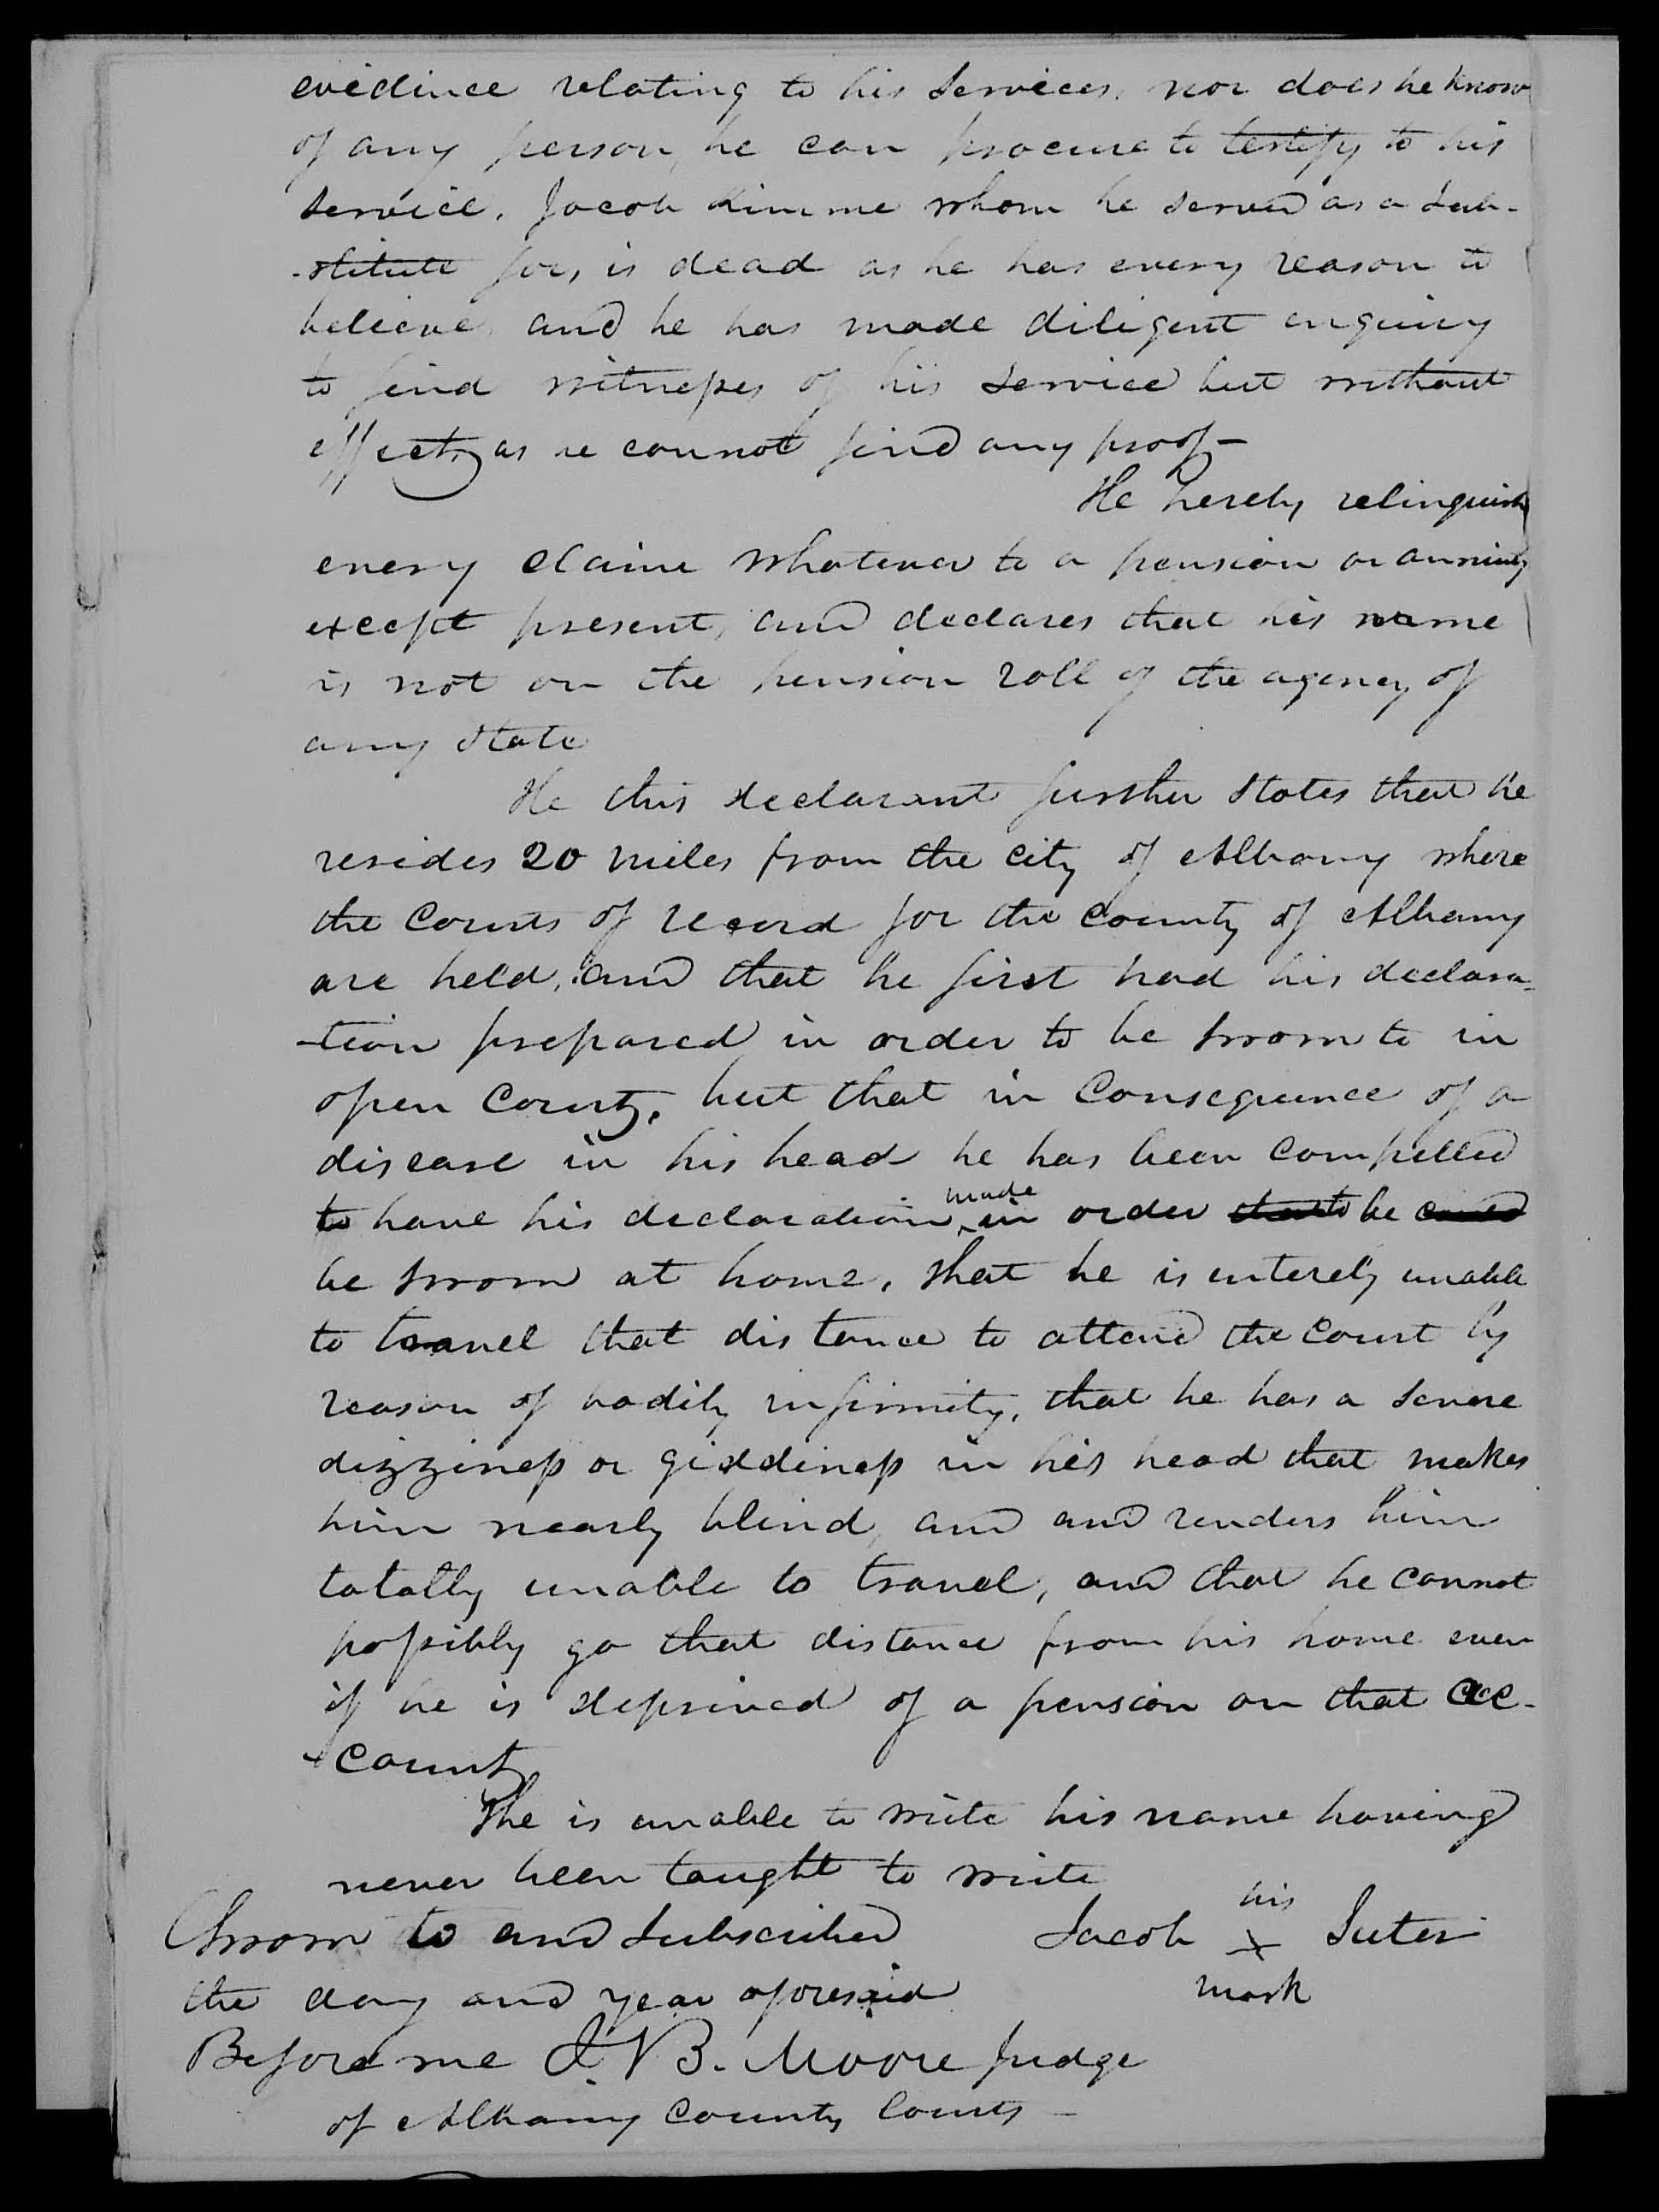 evidince relating to his Services, nor does he know
of any person, he can procure to testify to his
Service. Jacob Kimme whom he served as a Sub-
-stitute for, is dead as he has every reason to
believe, and he has made diligent enquiry
to find witnesses of his Service but without
effect, as he cannot find any proof—
He hereby relinquish
every claim whatever to a pension or annuity
except present, and declares that his name
is not on the pension roll of the agency of
any State
He this declarant further States that he
resides 20 miles from the city of Albany where
the Courts of record for the County of Albany
are held, and that he first had his declara-
-tion prepared in order to be sworn to in
open Court, but that in Consequence of a
disease in his head he has been compelled
to have his declaration made in order to be
be sworn at home, that he is enterely unable
to travel that distance to attend the Court by
reason of bodily infirmity, that he has a Severe
dizziness or giddiness in his head that makes
him nearly blind, and and renders him
totally unable to travel, and that he cannot
possibly go that distance from his home even
if he is deprived of a pension on that ac-
-count
The is unable to write his name having
never been taught to write
Sworn to and Subscribed Jacob his X mark Suter
the day and year aforesaid
Before me J. V B. Moore Judge
of Albany County Courts —